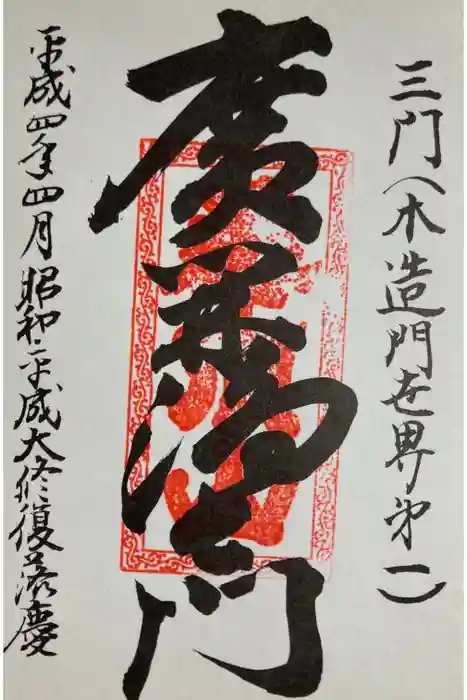 三門(木造門世界第一)
廣済門
平成四年四月昭和平成大修復落慶